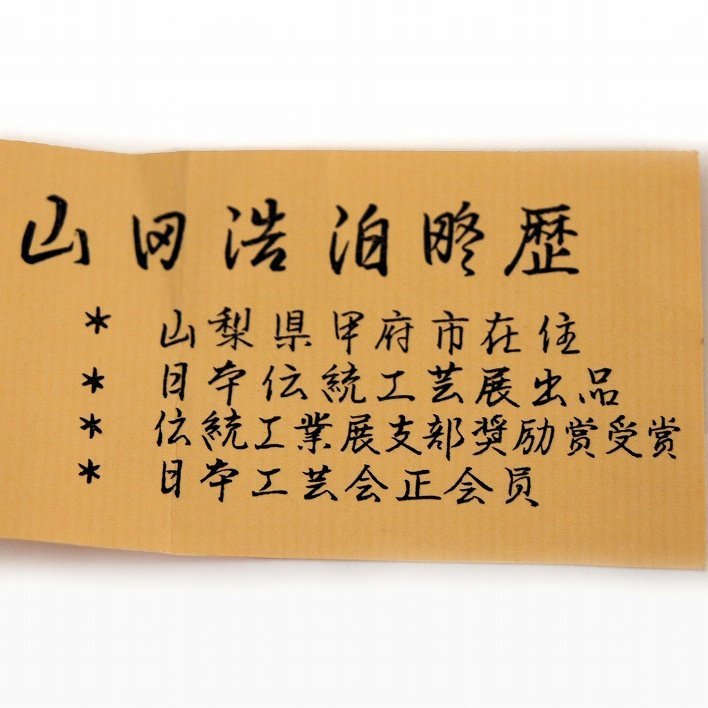 山岡浩泊略歴
* 山梨県甲府市在住
* 日本伝統工芸展出品
* 伝統工業展支部奨励賞受賞
* 日本工芸会正会員